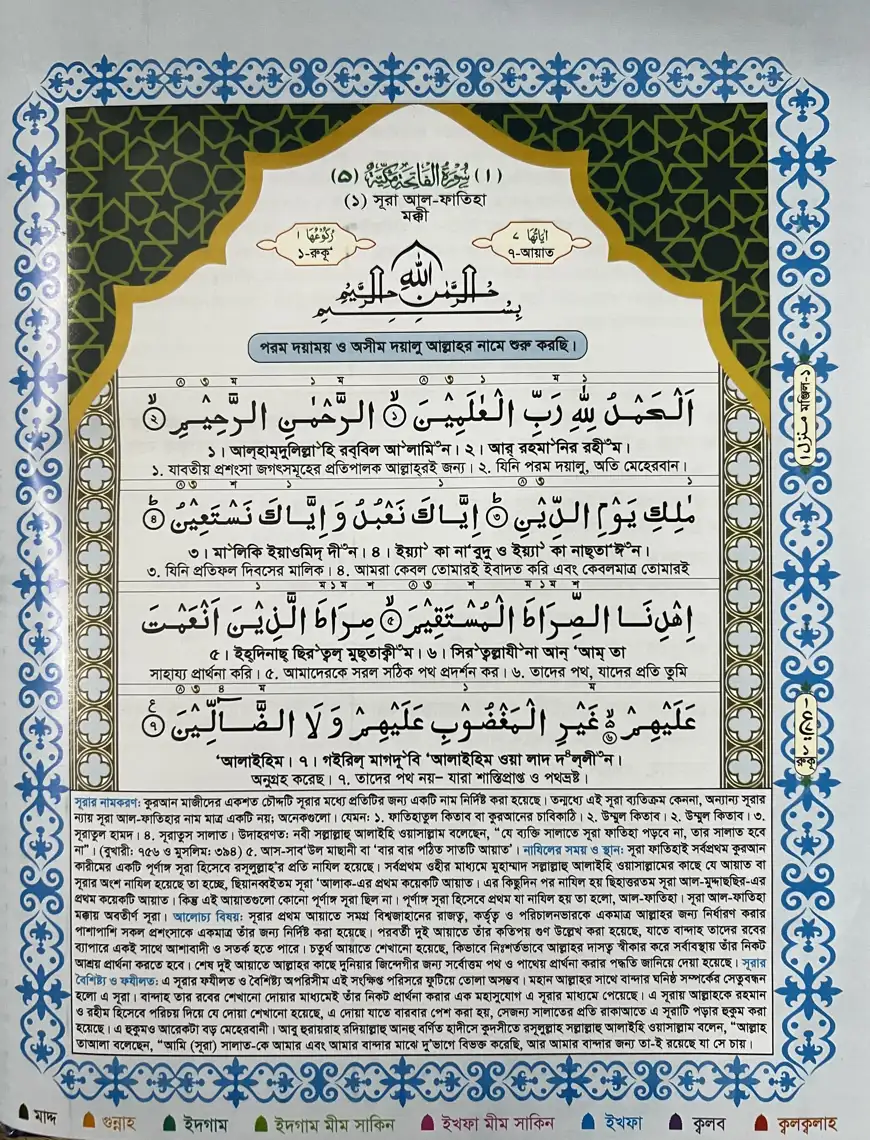 (١) سُوْرَةُ الْفَاتِحَةِ مَكِّيَّةٌ (٥)
(১) সূরা আল-ফাতিহা
মক্কী
اٰيَاتُهَا ٧
رُكُوْعُهَا ١
৭-আয়াত
১-রুকূ‘
بِسْمِ اللّٰهِ الرَّحْمٰنِ الرَّحِيْمِ
পরম দয়াময় ও অসীম দয়ালু আল্লাহর নামে শুরু করছি।
اَلْحَمْدُ لِلّٰهِ رَبِّ الْعٰلَمِيْنَ ۙ﴿١﴾ الرَّحْمٰنِ الرَّحِيْمِ ۙ﴿٢﴾
১। আল্‌হাম্‌দুলিল্লা-হি রব্‌বিল আ'লামি-ন। ২। আর্‌ রহমা-নির রহী-ম।
১. যাবতীয় প্রশংসা জগৎসমূহের প্রতিপালক আল্লাহরই জন্য। ২. যিনি পরম দয়ালু, অতি মেহেরবান।
مٰلِكِ يَوْمِ الدِّيْنِ ؕ﴿٣﴾ اِيَّاكَ نَعْبُدُ وَ اِيَّاكَ نَسْتَعِيْنُ ؕ﴿٤﴾
৩। মা-লিকি ইয়াওমিদ্‌ দী-ন। ৪। ইয়্যা-কা না‘বুদু ও ইয়্যা-কা নাছ্‌তা‘ঈ-ন।
৩. যিনি প্রতিফল দিবসের মালিক। ৪. আমরা কেবল তোমারই ইবাদত করি এবং কেবলমাত্র তোমারই
اِهْدِنَا الصِّرَاطَ الْمُسْتَقِيْمَ ۙ﴿٥﴾ صِرَاطَ الَّذِيْنَ اَنْعَمْتَ
৫। ইহ্‌দিনাছ্‌ ছির-ত্বল্‌ মুছ্‌তাক্বী-ম। ৬। সির-ত্বল্লাযী-না আন্‌ ‘আম্‌ তা
সাহায্য প্রার্থনা করি। ৫. আমাদেরকে সরল সঠিক পথ প্রদর্শন কর। ৬. তাদের পথ, যাদের প্রতি তুমি
عَلَيْهِمْ ۙ﴿٦﴾ غَيْرِ الْمَغْضُوْبِ عَلَيْهِمْ وَلَا الضَّآلِّيْنَ ﴿٧﴾
‘আলাইহিম। ৭। গইরিল্‌ মাগদূ-বি ‘আলাইহিম ওয়া লাদ দ-ল্‌লী-ন।
অনুগ্রহ করেছ। ৭. তাদের পথ নয়– যারা শাস্তিপ্রাপ্ত ও পথভ্রষ্ট।
منزل ١ মঞ্জিল-১
রুকূ
সূরার নামকরণ: কুরআন মাজীদের একশত চৌদ্দটি সূরার মধ্যে প্রতিটির জন্য একটি নাম নির্দিষ্ট করা হয়েছে। তন্মধ্যে এই সূরা ব্যতিক্রম কেননা, অন্যান্য সূরার
ন্যায় সূরা আল-ফাতিহার নাম মাত্র একটি নয়; অনেকগুলো। যেমন: ১. ফাতিহাতুল কিতাব বা কুরআনের চাবিকাঠি। ২. উম্মুল কিতাব। ২. উম্মুল কিতাব। ৩.
সূরাতুল হামদ। ৪. সূরাতুস সালাত। উদাহরণত: নবী সল্লাল্লাহু আলাইহি ওয়াসাল্লাম বলেছেন, “যে ব্যক্তি সালাতে সূরা ফাতিহা পড়বে না, তার সালাত হবে
না”। (বুখারী: ৭৫৬ ও মুসলিম: ৩৯৪) ৫. আস-সাব‘উল মাছানী বা ‘বার বার পঠিত সাতটি আয়াত’। নাযিলের সময় ও স্থান: সূরা ফাতিহাই সর্বপ্রথম কুরআন
কারীমের একটি পূর্ণাঙ্গ সূরা হিসেবে রসূলুল্লাহ’র প্রতি নাযিল হয়েছে। সর্বপ্রথম ওহীর মাধ্যমে মুহাম্মাদ সল্লাল্লাহু আলাইহি ওয়াসাল্লামের কাছে যে আয়াত বা
সূরার অংশ নাযিল হয়েছে তা হচ্ছে, ছিয়ানব্বইতম সূরা ‘আলাক-এর প্রথম কয়েকটি আয়াত। এর কিছুদিন পর নাযিল হয় ছিহাত্তরতম সূরা আল-মুদ্দাছছির-এর
প্রথম কয়েকটি আয়াত। কিন্তু এই আয়াতগুলো কোনো পূর্ণাঙ্গ সূরা ছিল না। পূর্ণাঙ্গ সূরা হিসেবে প্রথম যা নাযিল হয় তা হলো, আল-ফাতিহা। সূরা আল-ফাতিহা
মক্কায় অবতীর্ণ সূরা। আলোচ্য বিষয়: সূরার প্রথম আয়াতে সমগ্র বিশ্বজাহানের রাজত্ব, কর্তৃত্ব ও পরিচালনভারকে একমাত্র আল্লাহর জন্য নির্ধারণ করার
পাশাপাশি সকল প্রশংসাকে একমাত্র তাঁর জন্য নির্দিষ্ট করা হয়েছে। পরবর্তী দুই আয়াতে তাঁর কতিপয় গুণ উল্লেখ করা হয়েছে, যাতে বান্দাহ তাদের রবের
ব্যাপারে একই সাথে আশাবাদী ও সতর্ক হতে পারে। চতুর্থ আয়াতে শেখানো হয়েছে, কিভাবে নিঃশর্তভাবে আল্লাহর দাসত্ব স্বীকার করে সর্বাবস্থায় তাঁর নিকট
আশ্রয় প্রার্থনা করতে হবে। শেষ দুই আয়াতে আল্লাহর কাছে দুনিয়ার জিন্দেগীর জন্য সর্বোত্তম পথ ও পাথেয় প্রার্থনা করার পদ্ধতি জানিয়ে দেয়া হয়েছে। সূরার
বৈশিষ্ট্য ও ফযীলত: এ সূরার ফযীলত ও বৈশিষ্ট্য অপরিসীম এই সংক্ষিপ্ত পরিসরে ফুটিয়ে তোলা অসম্ভব। মহান আল্লাহর সাথে বান্দার ঘনিষ্ঠ সম্পর্কের সেতুবন্ধন
হলো এ সূরা। বান্দাহ তার রবের শেখানো দোয়ার মাধ্যমেই তাঁর নিকট প্রার্থনা করার এক মহাসুযোগ এ সূরার মাধ্যমে পেয়েছে। এ সূরায় আল্লাহকে রহমান
ও রহীম হিসেবে পরিচয় দিয়ে যে দোয়া শেখানো হয়েছে, এ দোয়া যাতে বারবার পেশ করা হয়, সেজন্য সালাতের প্রতি রাকাআতে এ সূরাটি পড়ার হুকুম করা
হয়েছে। এ হুকুমও আরেকটা বড় মেহেরবানী। আবু হুরায়রাহ রদিয়াল্লাহু আনহু বর্ণিত হাদীসে কুদসীতে রসূলুল্লাহ সল্লাল্লাহু আলাইহি ওয়াসাল্লাম বলেন, “আল্লাহ
তাআলা বলেছেন, “আমি (সূরা) সালাত-কে আমার এবং আমার বান্দার মাঝে দু’ভাগে বিভক্ত করেছি, আর আমার বান্দার জন্য তা-ই রয়েছে যা সে চায়।
মাদ্দ গুন্নাহ ইদগাম ইদগাম মীম সাকিন ইখফা মীম সাকিন ইখফা ক্বলব ক্বলক্বলাহ